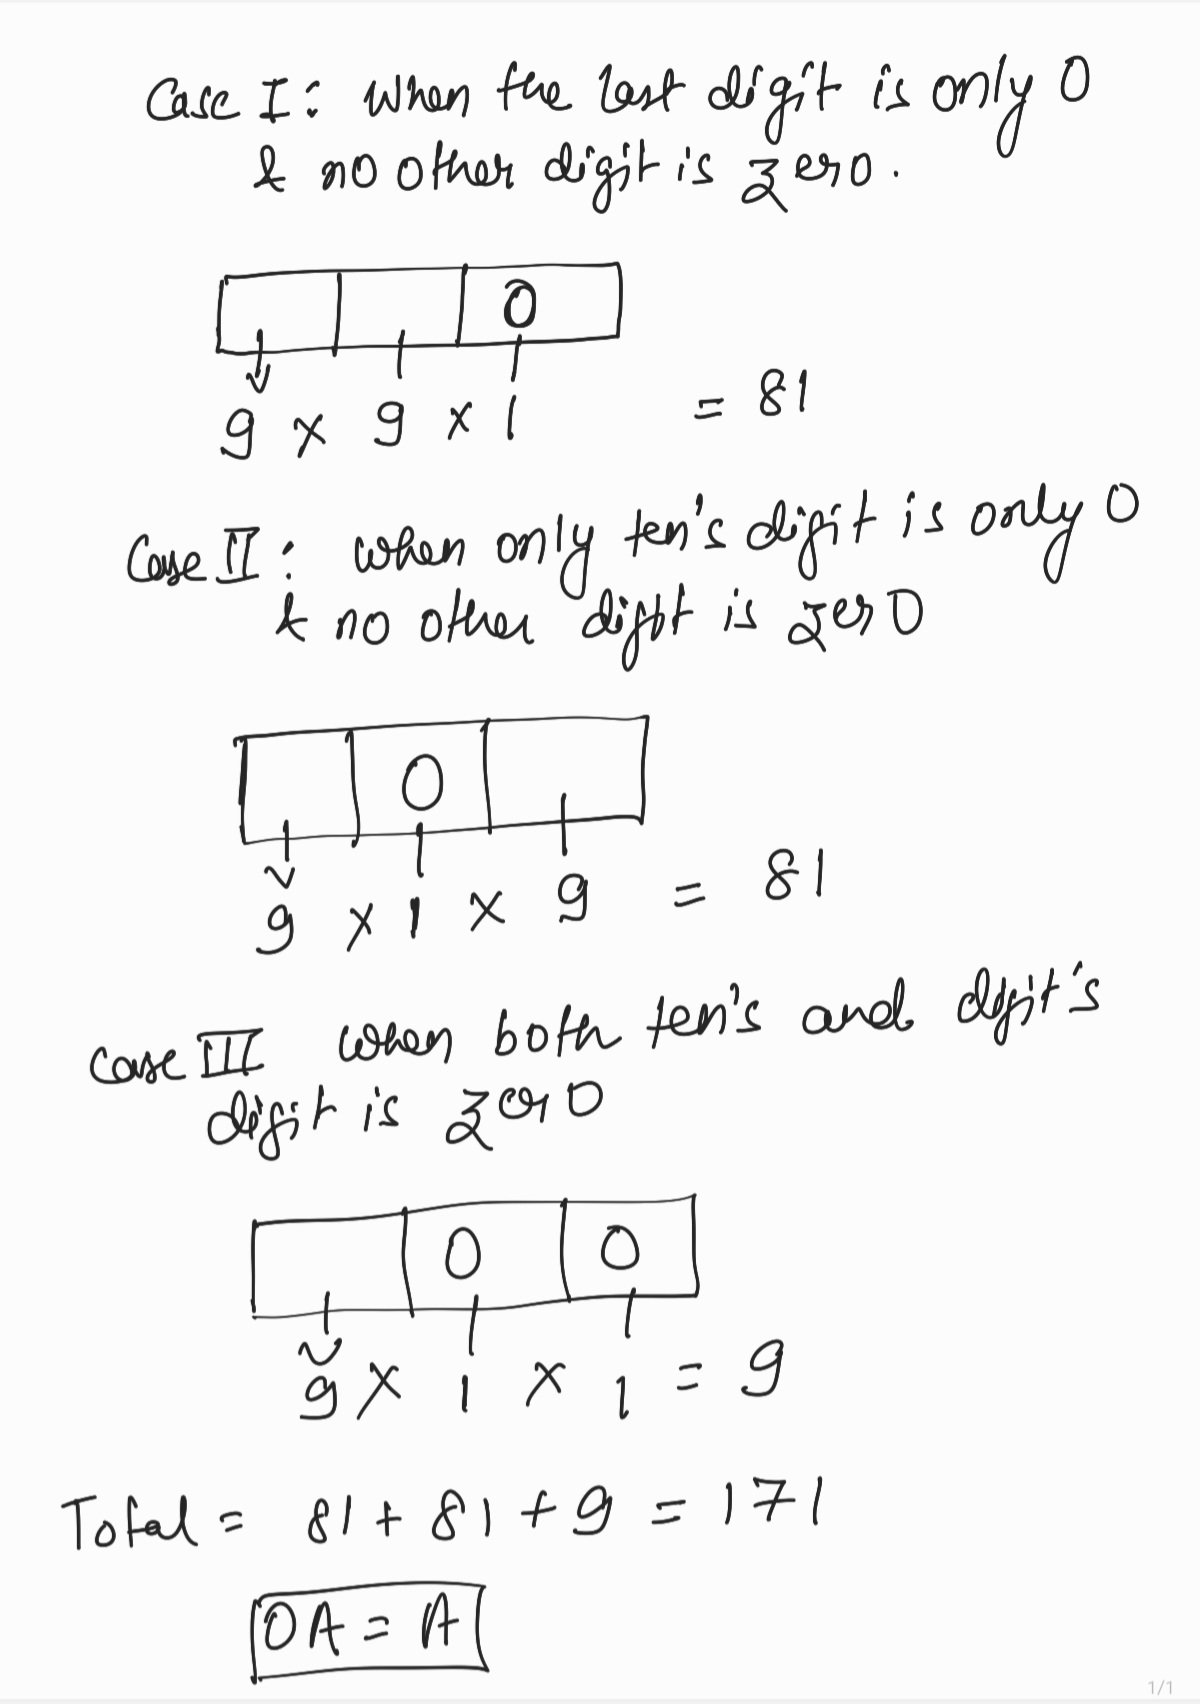 Case I: When the last digit is only 0
& no other digit is zero.
0
9 x 9 x 1 = 81
Case II: when only ten's digit is only 0
& no other digit is zero
0
9 x 1 x 9 = 81
Case III when both ten's and digit's
digit is zero
0 0
9 x 1 x 1 = 9
Total = 81 + 81 + 9 = 171
OA = A
1/1